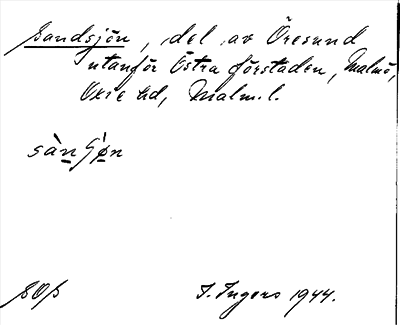 Sandsjön, del av Öresund
utanför Östra förstaden, Malmö,
Oxie hd, Malm. l.
I. Ingers 1944.